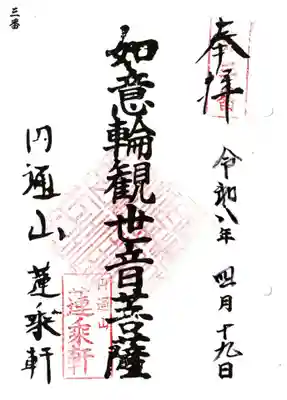 三番
奉拝
令和八年 四月十九日
如意輪観世音菩薩
円通山 蓮乘軒
円通山
蓮乘軒